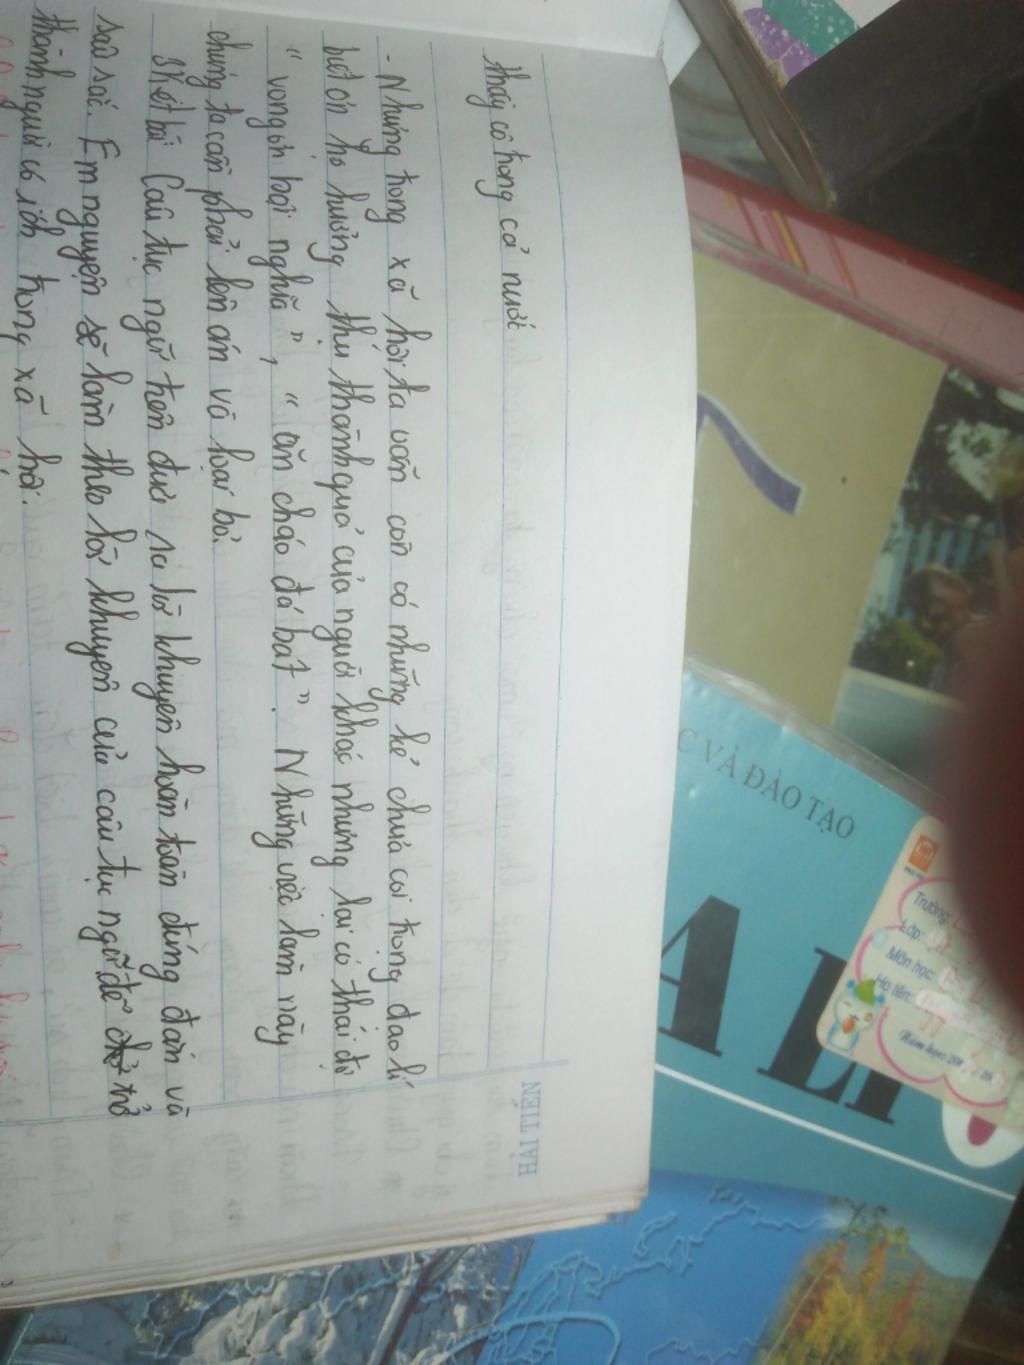 thầy cô trong cả nước
- Nhưng trong xã hội ta vẫn còn có những kẻ chưa coi trọng đạo lí
biết ơn họ hưởng thụ thành quả của người khác nhưng lại có thái độ
" vong ơn bội nghĩa ", " ăn cháo đá bát ". Những việc làm này
chúng ta cần phải lên án và loại bỏ.
3Kết bài Câu tục ngữ trên đưa ra lời khuyên hoàn toàn đúng đắn và
sâu sắc. Em nguyện sẽ làm theo lời khuyên của câu tục ngữ để trở
thành người có ích trong xã hội.
HẢI TIẾN
7
C VÀ ĐÀO TẠO
A LÍ
Trường:
Lớp:
Môn học:
Họ tên:
(Năm học: 20